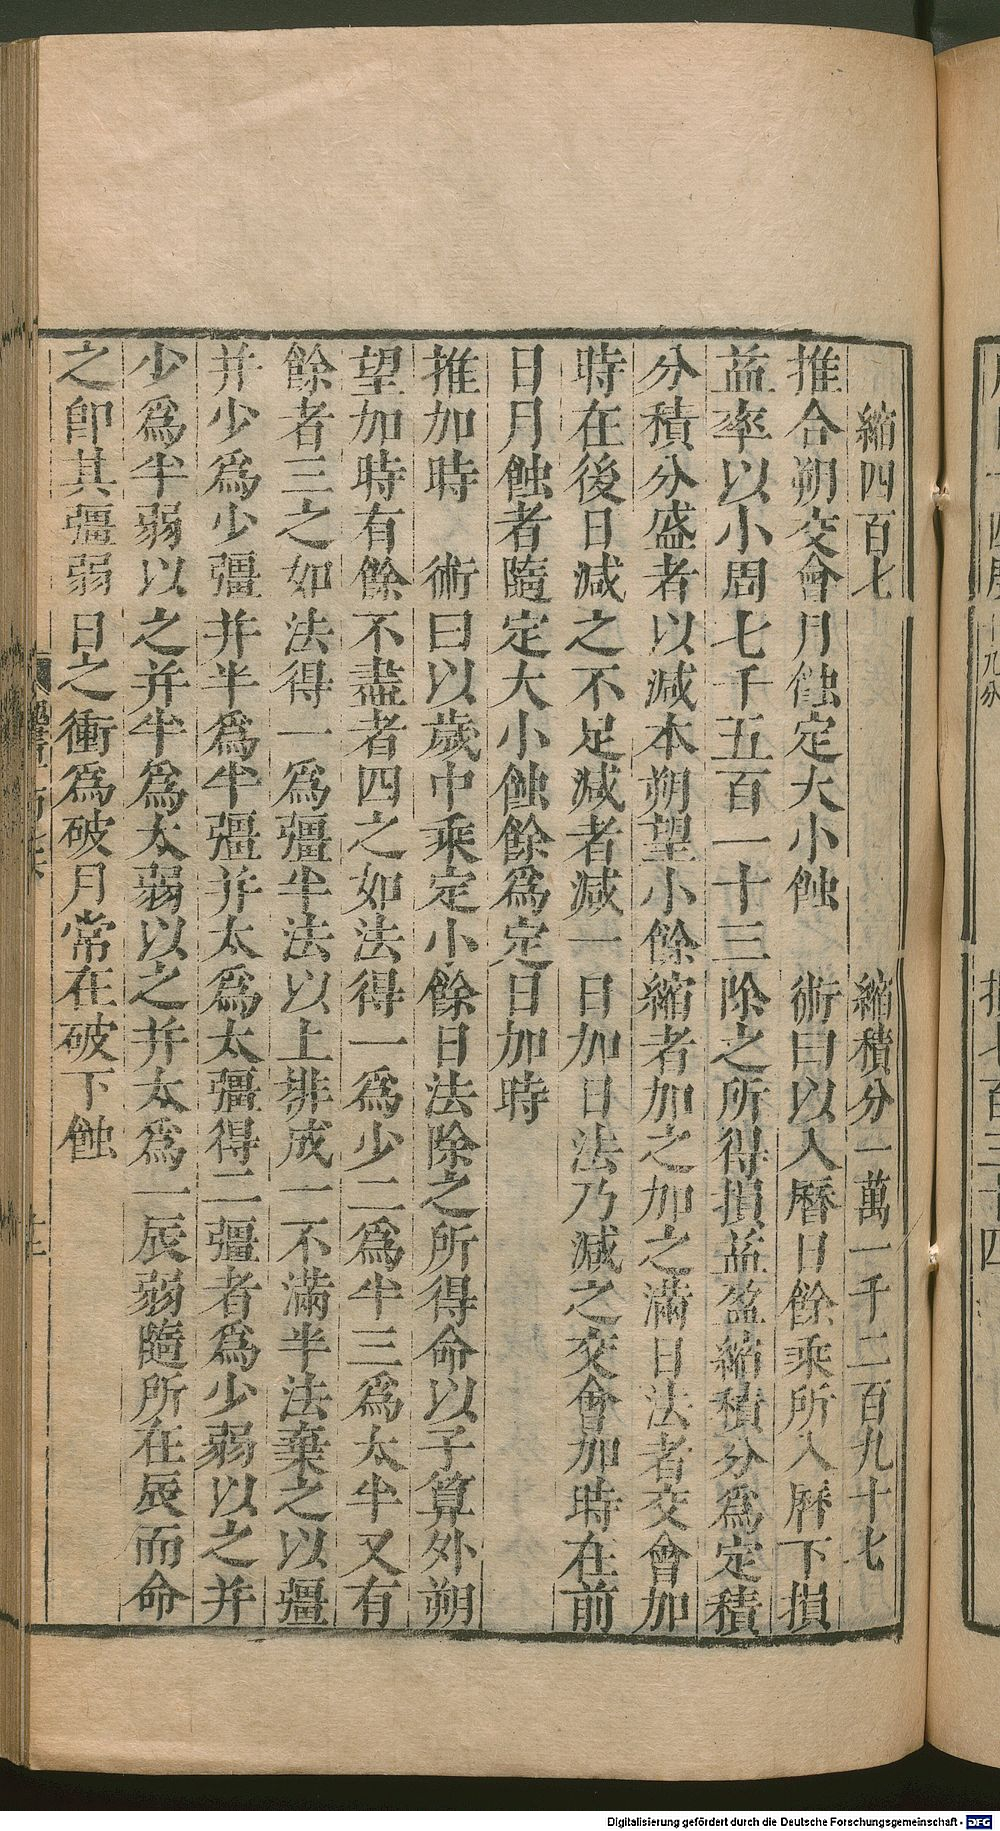 縮四百七　縮積分一萬一千二百九十七
推合朔交會月蝕定大小蝕　術曰以入曆日餘乘所入曆下損
益率以小周七千五百一十三除之所得損益盈縮積分爲定積
分積分盛者以減本朔望小餘縮者加之加之滿日法者交會加
時在後日減之不足減者減一日加日法乃減之交會加時在前
日月蝕者隨定大小蝕餘爲定日加時
推加時　術曰以歲中乘定小餘日法除之所得命以子算外朔
望加時有餘不盡者四之如法得一爲少二爲半三爲太半又有
餘者三之如法得一爲彊半法以上排成一不滿半法棄之以彊
并少爲少彊并半爲半彊并太爲太彊得二彊者爲少弱以之并
少爲半弱以之并半爲太弱以之并太爲一辰弱隨所在辰而命
之卽其彊弱日之衝爲破月常在破下蝕
Digitalisierung gefördert durch die Deutsche Forschungsgemeinschaft - DFG